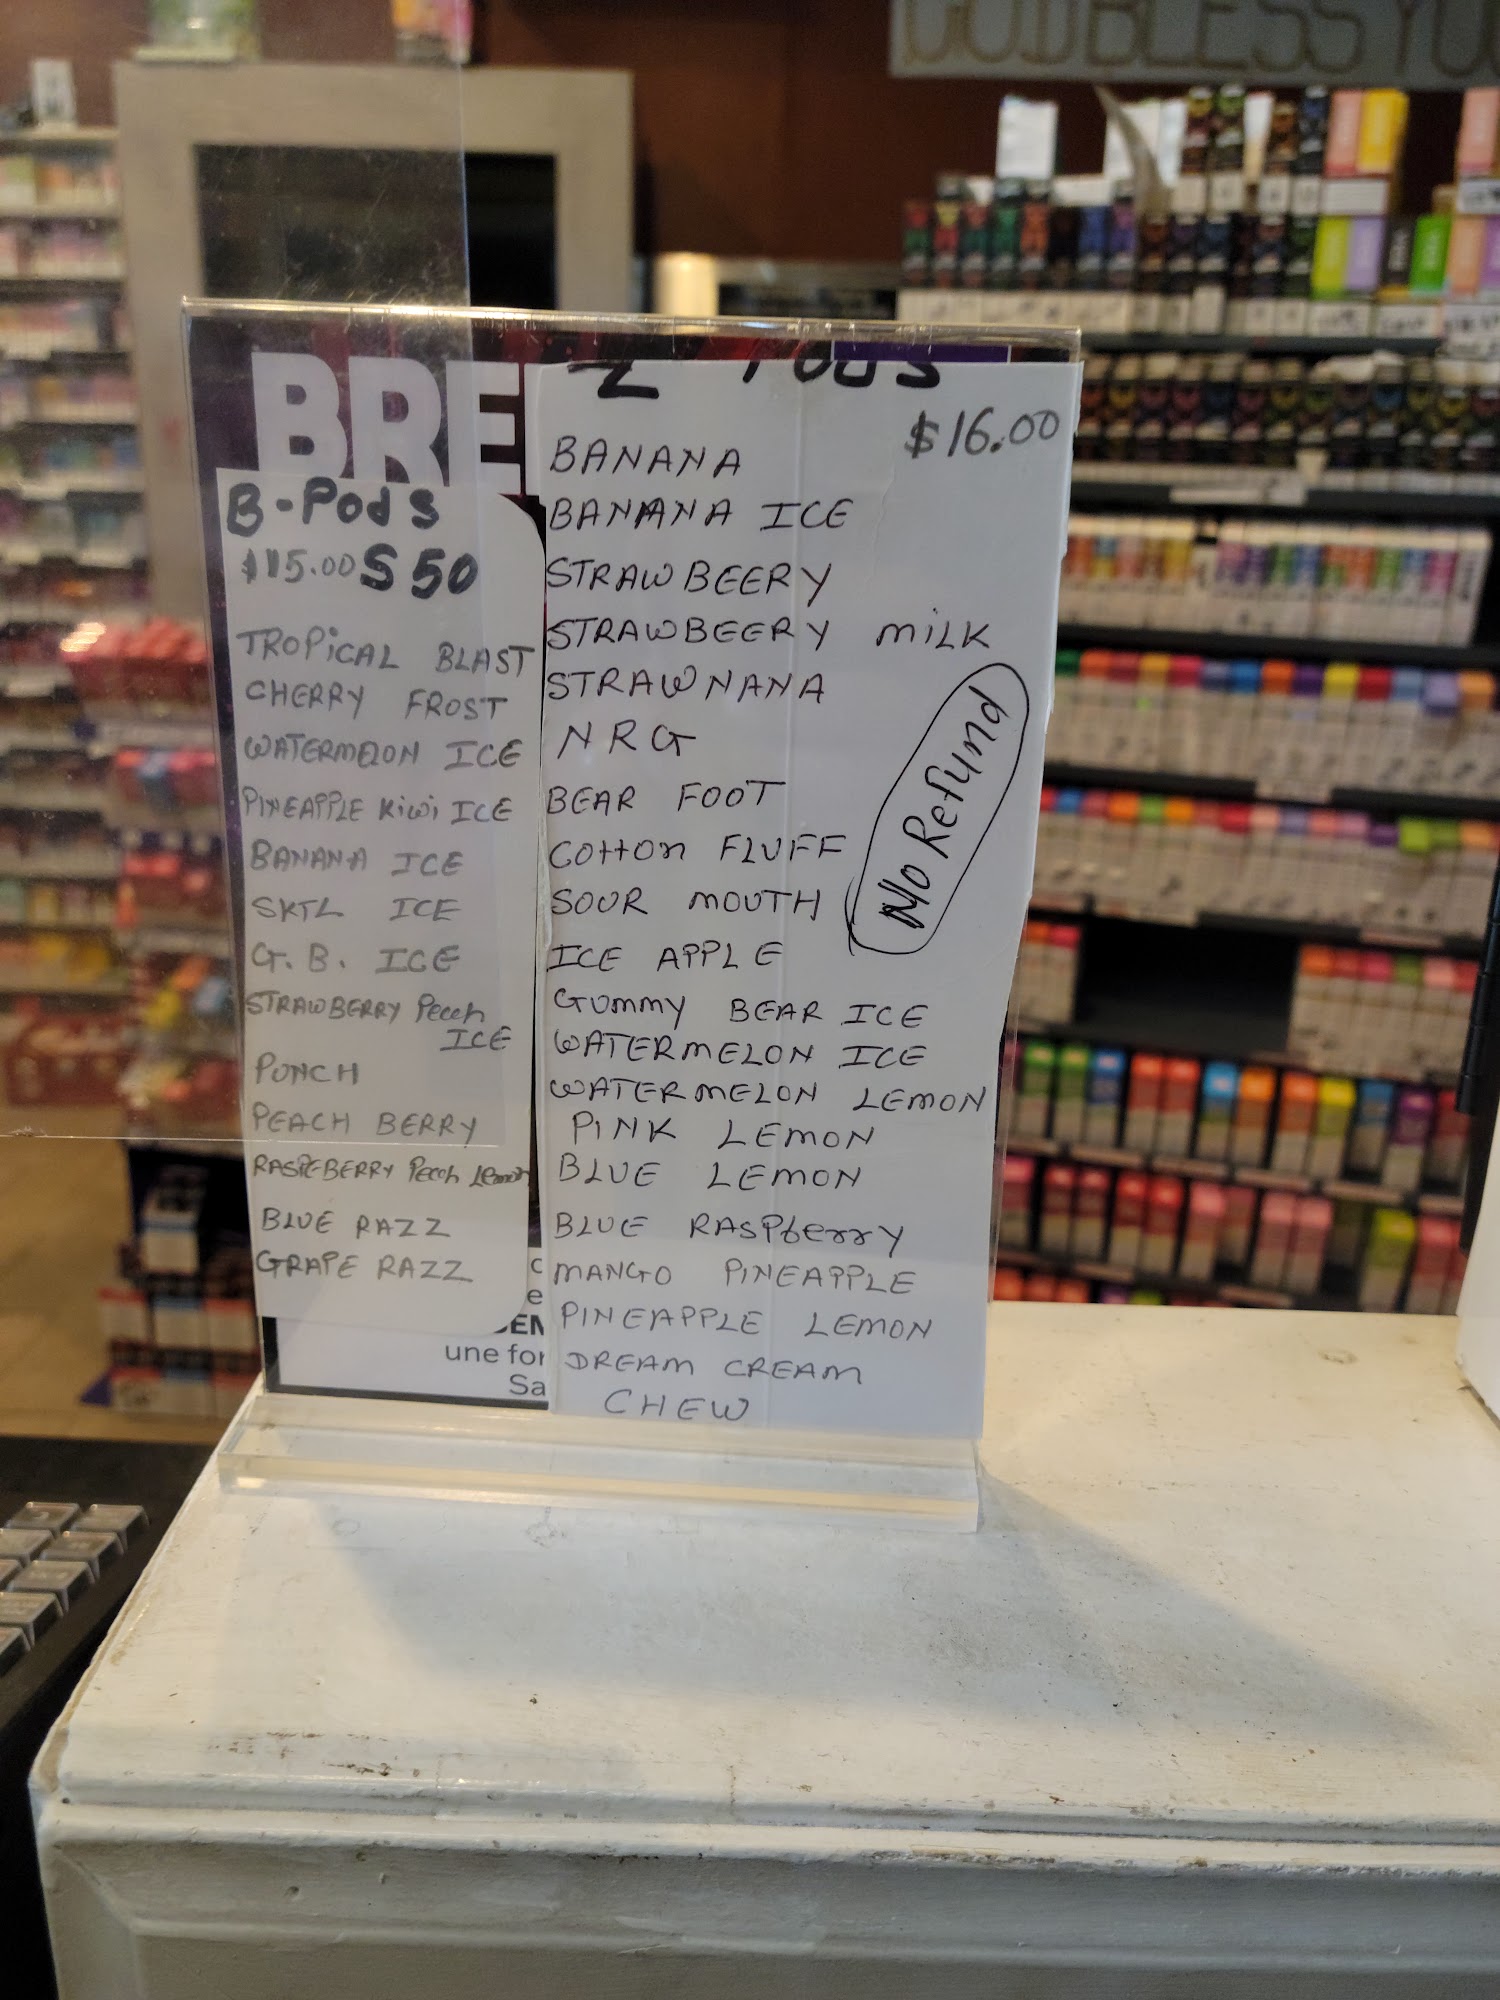 GOD BLESS YOU
BRE
B-Pods
$15.00 S50
TROPiCAL BLAST
CHERRY FROST
WATERMELON ICE
PINEAPPLE Kiwi ICE
BANANA ICE
SKTL ICE
G.B. ICE
STRAWBERRY Peech
ICE
PUNCH
PEACH BERRY
RASPEBERRY Peech Lemon
BLUE RAZZ
GRAPE RAZZ
Z PODS
$16.00
BANANA
BANANA ICE
STRAWBEERY
STRAWBEERY MiLK
STRAWNANA
NRG
BEAR FOOT
Cotton FLUFF
SOUR MOUTH
ICE APPLE
GUMMY BEAR ICE
WATERMELON ICE
WATERMELON LEMON
PINK LEMON
BLUE LEMON
BLUE RASPberry
MANGO PINEAPPLE
PINEAPPLE LEMON
DREAM CREAM
CHEW
No Refund
une for
Sa